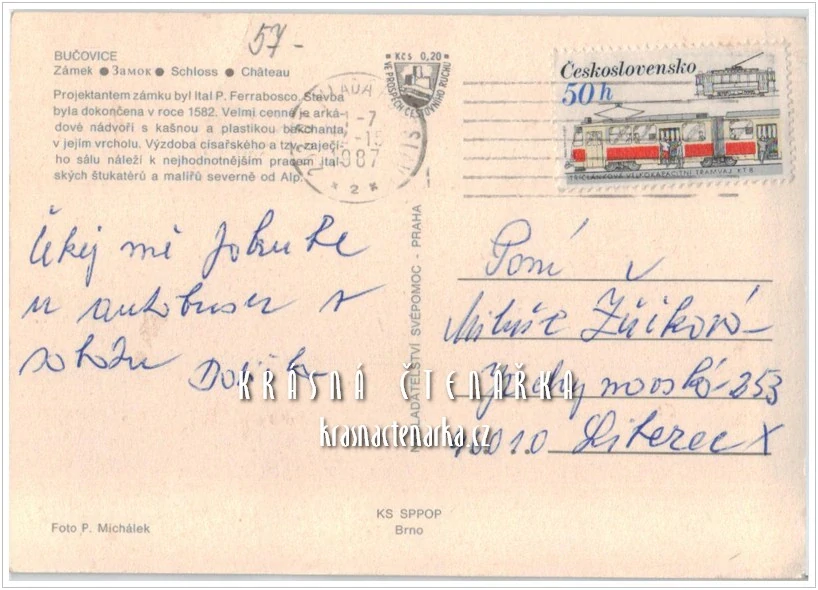 57-
BUČOVICE
Zámek ● Замок ● Schloss ● Château
Projektantem zámku byl Ital P. Ferrabosco. Stavba
byla dokončena v roce 1582. Velmi cenné je arká-
dové nádvoří s kašnou a plastikou bakchanta
v jejím vrcholu. Výzdoba císařského a tzv. zaječí-
ho sálu náleží k nejhodnotnějším pracem ital-
ských štukatérů a malířů severně od Alp.
Kčs 0,20
VE PROSPĚCH CESTOVNÍHO RUCHU
-7
-15
987
* 2 *
Československo
50 h
TŘÍČLÁNKOVÁ VELKOKAPACITNÍ TRAMVAJ KT 8
Čekej mě
u autobusu v
sobotu
NAKLADATELSTVÍ SVÉPOMOC - PRAHA
Paní
Miluše
253
Liberec X
KRÁSNÁ ČTENÁŘKA
krasnactenarka.cz
Foto P. Michálek
KS SPPOP
Brno